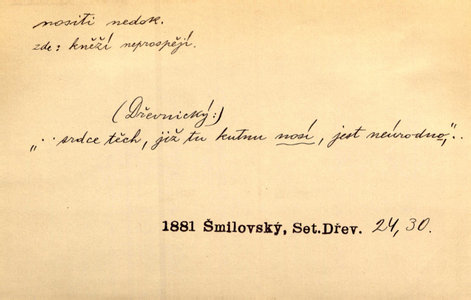 nositi nedok.
zde: kněží neprospějí.
(Dřevnický:)
„.. srdce těch, již tu kutnu nosí, jest neúrodno,"..
1881 Šmilovský, Set.Dřev. 24, 30.